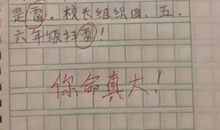 是雷。校长组织四、五、
六年级扫雷！
你命真大！